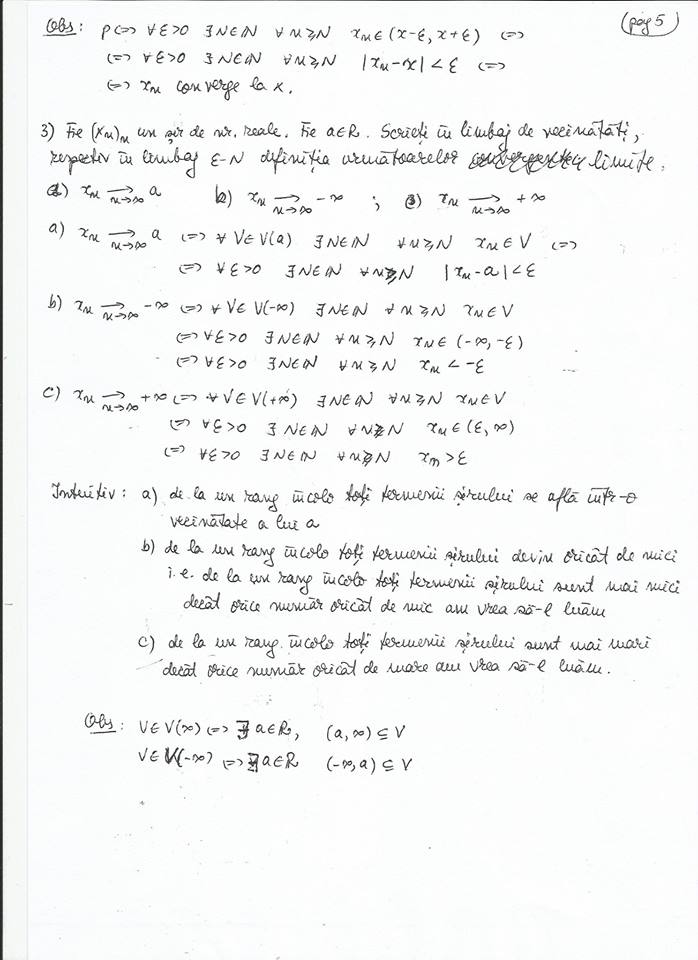 (pag 5)
Obs: p ⇔ ∀ε>0 ∃N∈ℕ ∀n≥N xₙ∈(x-ε, x+ε) ⇔
⇔ ∀ε>0 ∃N∈ℕ ∀n≥N |xₙ-x|<ε ⇔
⇔ xₙ converge la x.
3) Fie (xₙ)ₙ un șir de nr. reale. Fie a∈R. Scrieți în limbaj de vecinătăți,
respectiv în limbaj ε-N definiția următoarelor limite.
a) xₙ →_{n→∞} a b) xₙ →_{n→∞} -∞ ; c) xₙ →_{n→∞} +∞
a) xₙ →_{n→∞} a ⇔ ∀ V∈V(a) ∃N∈ℕ ∀n≥N xₙ∈V ⇔
⇔ ∀ε>0 ∃N∈ℕ ∀n≥N |xₙ-a|<ε
b) xₙ →_{n→∞} -∞ ⇔ ∀ V∈V(-∞) ∃N∈ℕ ∀n≥N xₙ∈V
⇔ ∀ε>0 ∃N∈ℕ ∀n≥N xₙ∈(-∞,-ε)
⇔ ∀ε>0 ∃N∈ℕ ∀n≥N xₙ < -ε
c) xₙ →_{n→∞} +∞ ⇔ ∀V∈V(+∞) ∃N∈ℕ ∀n≥N xₙ∈V
⇔ ∀ε>0 ∃N∈ℕ ∀n≥N xₙ∈(ε,∞)
⇔ ∀ε>0 ∃N∈ℕ ∀n≥N xₙ>ε
Intuitiv: a) de la un rang încolo toți termenii șirului se află într-o
vecinătate a lui a
b) de la un rang încolo toți termenii șirului devin oricât de mici
i.e. de la un rang încolo toți termenii șirului sunt mai mici
decât orice număr oricât de mic am vrea să-l luăm
c) de la un rang încolo toți termenii șirului sunt mai mari
decât orice număr oricât de mare am vrea să-l luăm.
Obs: V∈V(∞) ⇔ ∃ a∈R, (a,∞) ⊆ V
V∈V(-∞) ⇔ ∃ a∈R (-∞,a) ⊆ V